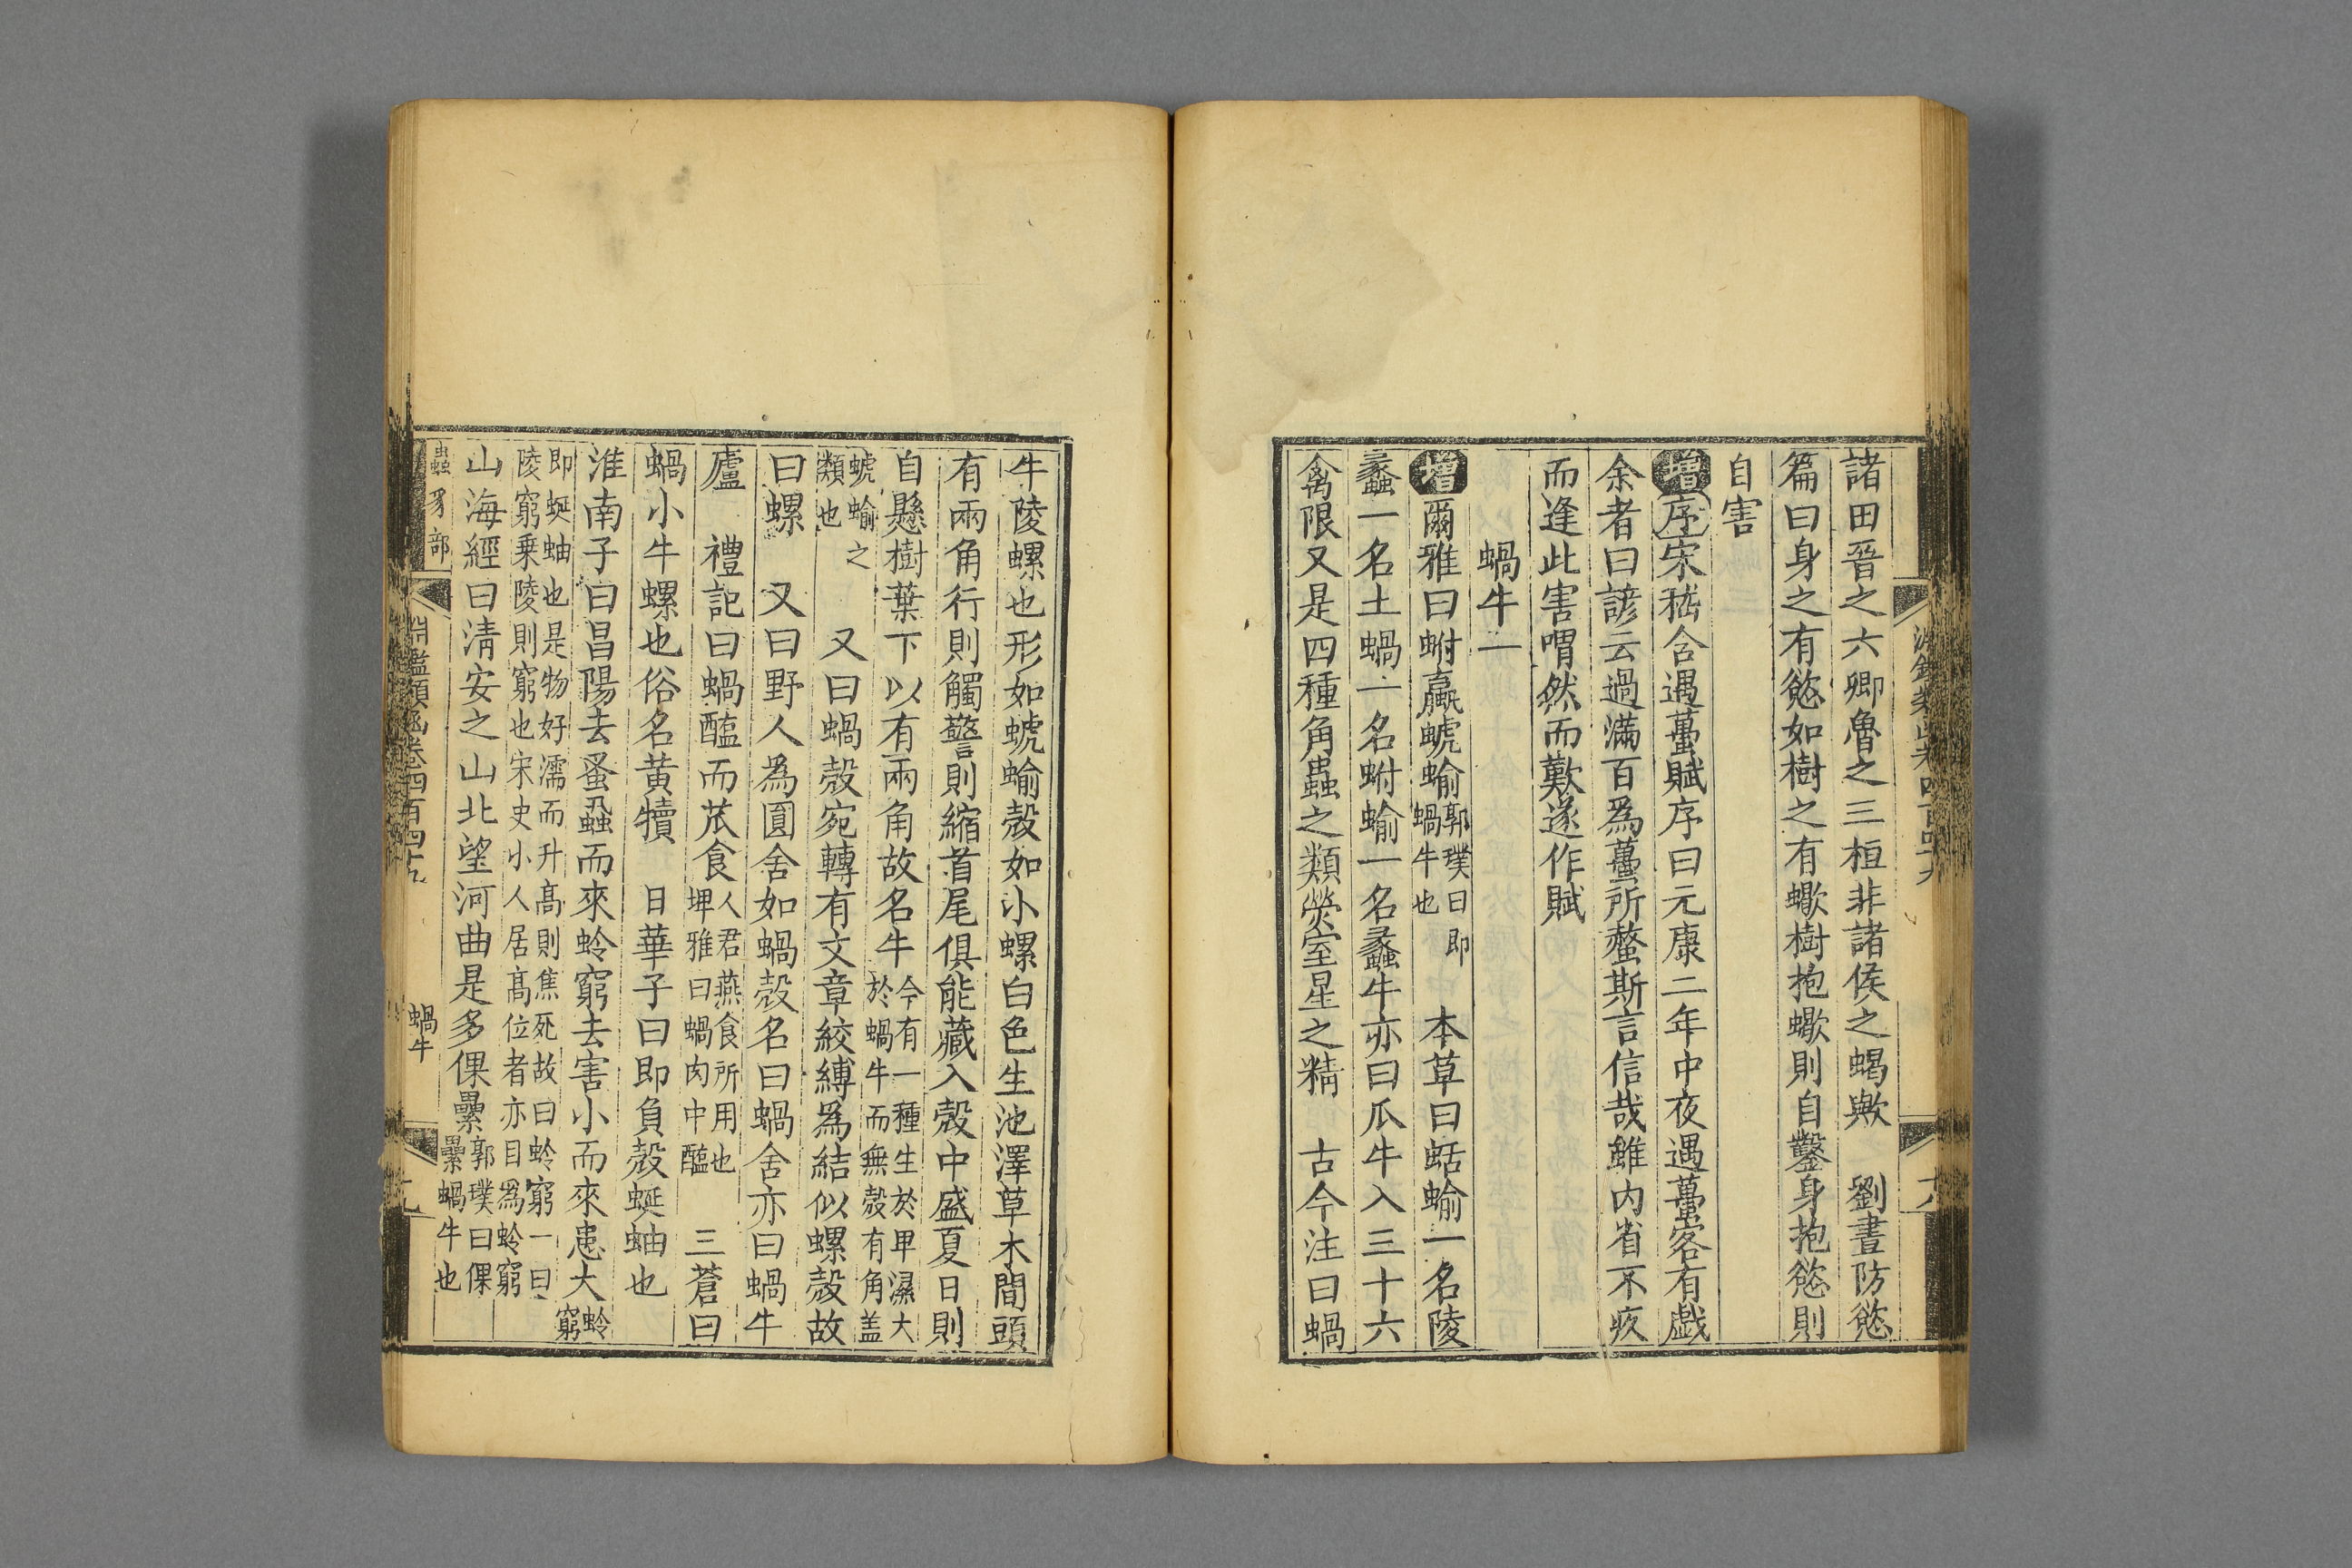 諸田晉之六卿魯之三桓非諸侯之蝎歟　劉晝防慾
篇曰身之有慾如樹之有蠍樹抱蠍則自鑿身抱慾則
自害
增序宋嵇含遇蠆賦序曰元康二年中夜遇蠆客有戯
余者曰諺云過滿百爲蠆所螫斯言信哉雖内省不疚
而逢此害喟然而歎遂作賦
蝸牛一
增爾雅曰蚹蠃螔蝓郭璞曰即蝸牛也　本草曰蛞蝓一名陵
蠡一名土蝸一名蚹蝓一名蠡牛亦曰瓜牛入三十六
禽限又是四種角蟲之類熒室星之精　古今注曰蝸
牛陵螺也形如螔蝓殼如小螺白色生池澤草木間頭
有兩角行則觸警則縮首尾俱能藏入殼中盛夏日則
自懸樹葉下以有兩角故名牛今有一種生於卑濕大於蝸牛而無殼有角盖
螔蝓之類也　又曰蝸殼宛轉有文章絞縛爲結似螺殼故
曰螺　又曰野人為圓舍如蝸殼名曰蝸舍亦曰蝸牛
廬　禮記曰蝸醢而苽食人君燕食所用也埤雅曰蝸肉中醢　三蒼曰
蝸小牛螺也俗名黄犢　日華子曰即負殼蜒蚰也
淮南子曰昌陽去蚤蝨而來蛉窮去害小而來患大蛉窮
即蜒蚰也是物好濡而升高則焦死故曰蛉窮一曰陵窮乗陵則窮也宋史小人居高位者亦目爲蛉窮
山海經曰淸安之山北望河曲是多倮纍郭璞曰倮纍蝸牛也
蟲豸部
淵鑑類函卷四百四十九
蝸牛